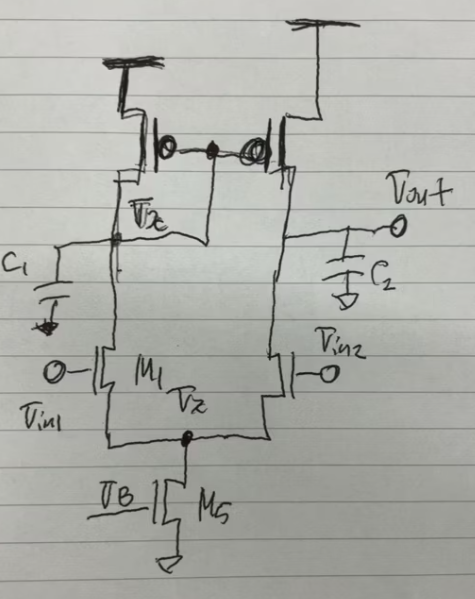 Vx
Vout
C1
C2
M1
Vin2
Vz
Vin1
VB
M5